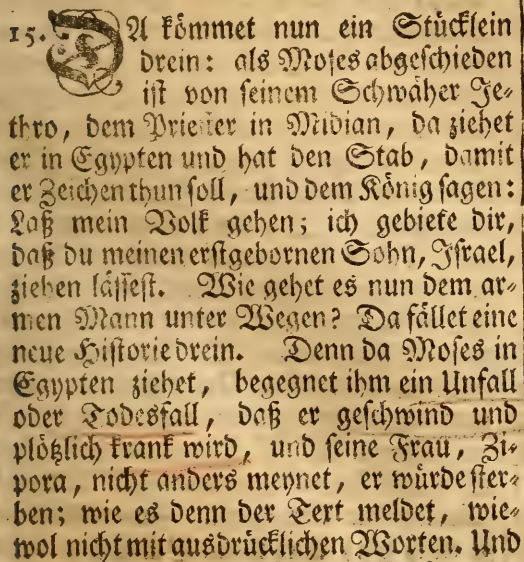 15. DA kömmet nun ein Stücklein
drein: als Moses abgeschieden
ist von seinem Schwäher Je-
thro, dem Priester in Midian, da ziehet
er in Egypten und hat den Stab, damit
er Zeichen thun soll, und dem König sagen:
Laß mein Volk gehen; ich gebiete dir,
daß du meinen erstgebornen Sohn, Israel,
ziehen lässest. Wie gehet es nun dem ar-
men Mann unter Wegen? Da fället eine
neue Historie drein. Denn da Moses in
Egypten ziehet, begegnet ihm ein Unfall
oder Todesfall, daß er geschwind und
plötzlich krank wird, und seine Frau, Zi-
pora, nicht anders meynet, er würde ster-
ben; wie es denn der Text meldet, wie-
wol nicht mit ausdrücklichen Worten. Und